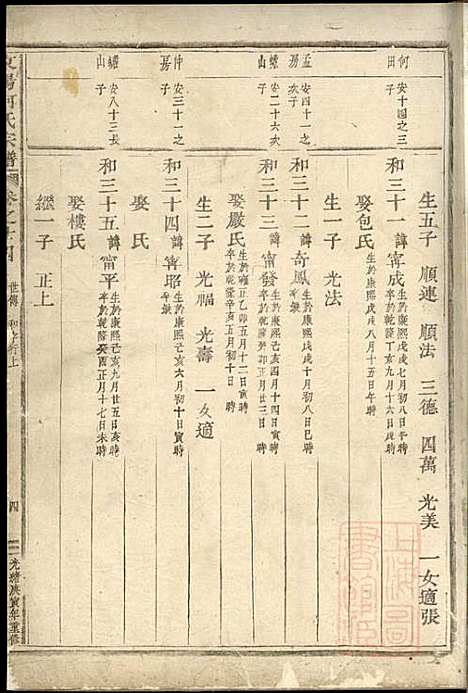 何 安十四之三
田 子
生五子 順連 順法 三德 四萬 光美 一女適張
和三十一 諱甯成 生於康熙戊戌七月初八日午時
卒於乾隆 月十六日戌時
娶包氏 生於康熙戊戌八月十五日午時
孟 安四十一之
房 次子
生一子 光法
和三十二 諱奇鳳 生於康熙戊戌十月初八日巳時
卒缺
螺 安二十六次
山 子
和三十三 諱甯發 生於康熙己亥二月初四日 時
卒於乾隆癸卯正月廿三日 時
娶嚴氏 生於雍正乙卯五月十二日 時
卒於乾隆辛亥五月初十日 時
生二子 光福 光壽 一女適
仲 安三十一之
房 子
和三十四 諱甯昭 生於康熙己亥六月初十日寅時
卒缺
娶 氏
螺 安八十三長
山 子
和三十五 諱甯平 生於康熙己亥九月廿五日亥時
卒於乾隆癸酉正月十七日未時
娶樓氏
繼一子 正上
何氏宗譜 卷之十四 世傳 和字行上 四 光緒庚寅年重修
上海圖書館藏